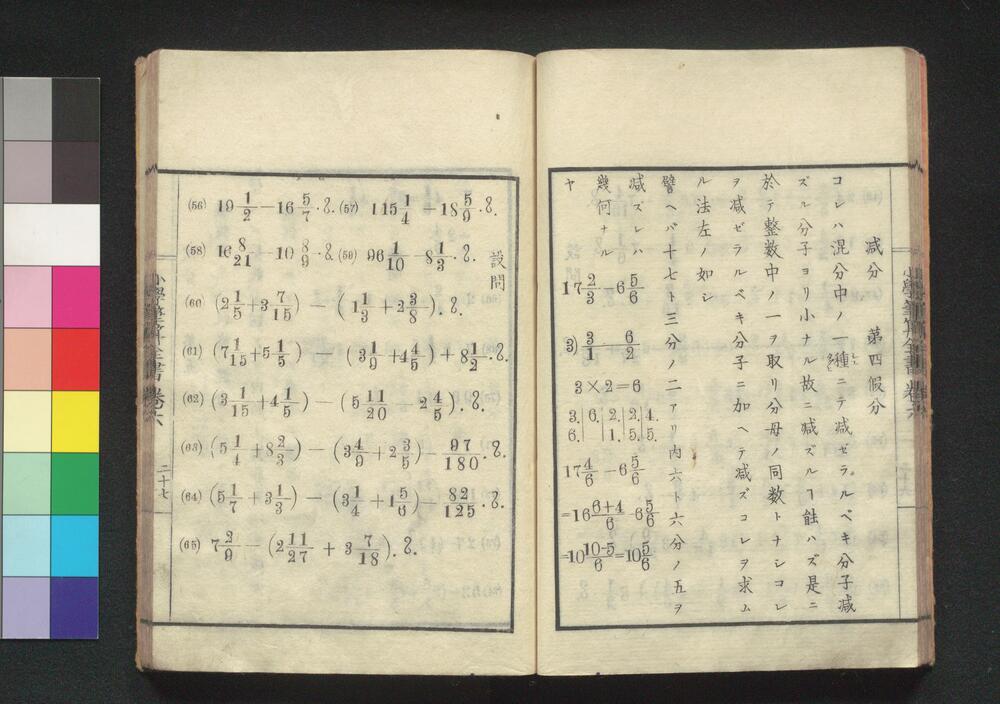 減分　第四假分
コレハ混分中ノ一種ニテ減ゼラルベキ分子減
ズル分子ヨリ小ナル故ニ減ズルヿ能ハズ是ニ
於テ整数中ノ一ヲ取リ分母ノ同数トナシコレ
ヲ減ゼラルベキ分子ニ加ヘテ減ズコレヲ求ム
ル法左ノ如シ
譬ヘバ十七ト三分ノ二アリ内六ト六分ノ五ヲ
減ズレバ
幾何ナル
ヤ
17 2/3 - 6 5/6
3) 3/1 — 6/2
3×2=6
3. 6. 2. 2. 4.
6. 1. 5. 5.
17 4/6 - 6 5/6
=16 6+4/6 - 6 5/6
=10 10-5/6 = 10 5/6
設問
(56) 19 1/2 - 16 5/7 . 8. (57) 115 1/4 - 18 5/9 . 8.
(58) 16 8/21 - 10 8/9 . 8. (59) 96 1/10 - 8 1/3 . 8.
(60) (2 1/5 + 3 7/15) - (1 1/3 + 2 3/8). 8.
(61) (7 1/15 + 5 1/5) - (3 1/9 + 4 4/5) + 8 1/2 . 8.
(62) (3 1/15 + 4 1/5) - (5 11/20 - 2 4/5). 8.
(63) (5 1/4 + 8 2/3) - (3 4/9 + 2 3/5) - 97/180 . 8.
(64) (5 1/7 + 3 1/3) - (3 1/4 + 1 5/6) - 82/125 . 8.
(65) 7 2/9 - (2 11/27 + 3 7/18). 8.
小學筭術全書 卷六
二十七